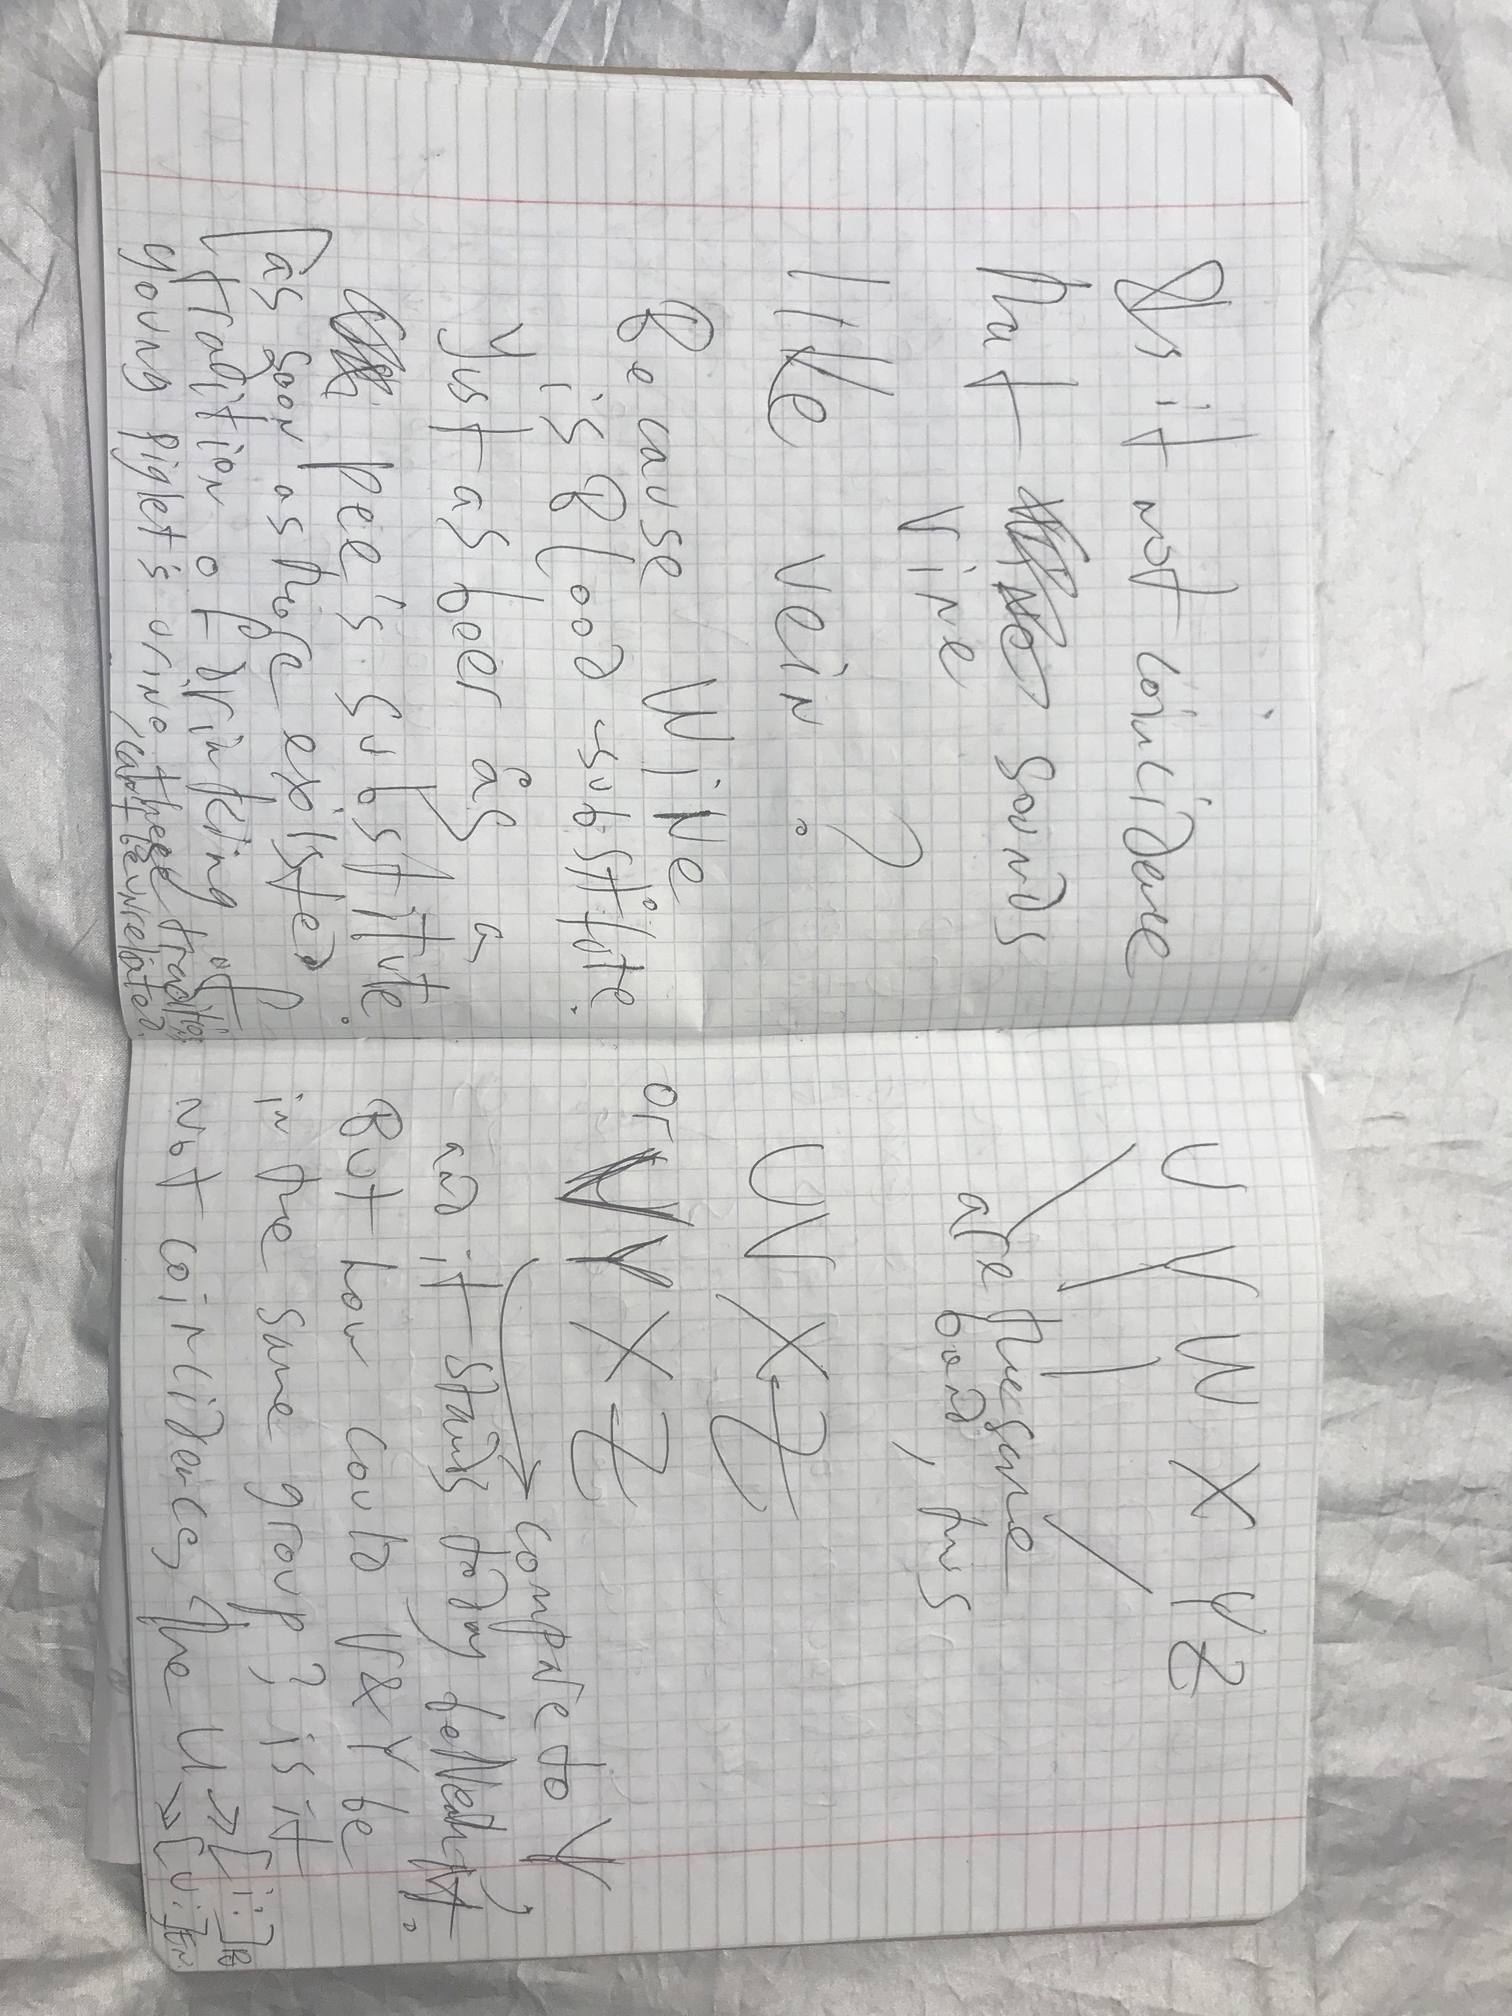 Is it not coincidence
that sounds
vine
like vein?
Because Wine
is Blood substitute.
Just as beer as a
pee's substitute.
[as soon as there existed
tradition of drinking of
young piglet's urine, these tradition
can't be unrelated.
U V W X Y Z
are the same
, thus
UVXZ
or VYXZ
compare to Ψ
and it stands today
But how could V & Y be
in the same group? is it
not coincidence, the U → [i:]
→ [u:]